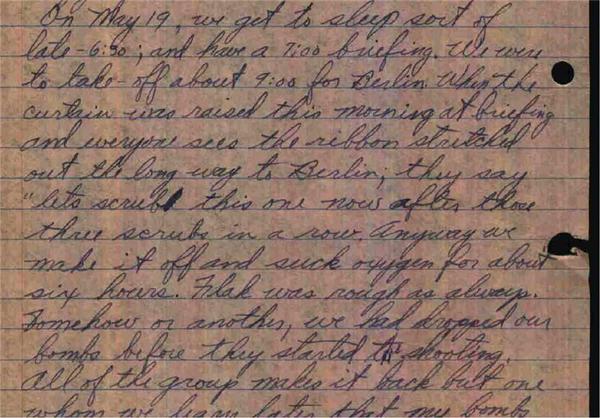 On May 19, we get to sleep sort of
late - 6:30; and have a 7:00 briefing. We were
to take-off about 9:00 for Berlin. When the
curtain was raised this morning at briefing
and everyone sees the ribbon stretched
out the long way to Berlin; they say
"lets scrub this one now after those
three scrubs in a row. Anyway we
make it off and suck oxygen for about
six hours. Flak was rough as always.
Somehow or another, we had dropped our
bombs before they started shooting.
All of the group makes it back but one
whom we learn later that bombs